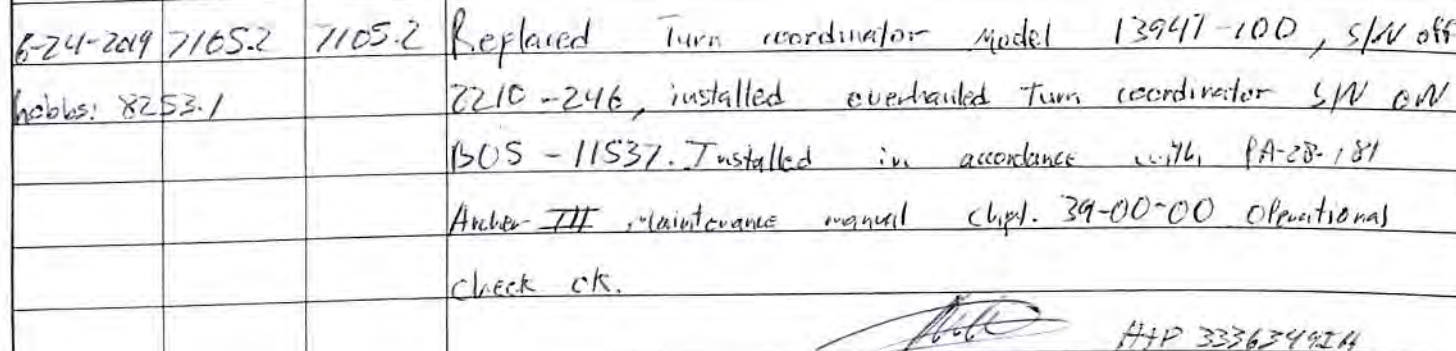 6-24-2019 7105.2 7105.2 Replaced Turn coordinator Model 13947-100, S/N off
hobbs: 8253.1 2210-246, installed overhauled Turn coordinator S/N ON
BOS-11537. Installed in accordance with PA-28-181
Archer III Maintenance manual chpt. 39-00-00 Operational
check ok.
A+P 3336349IA